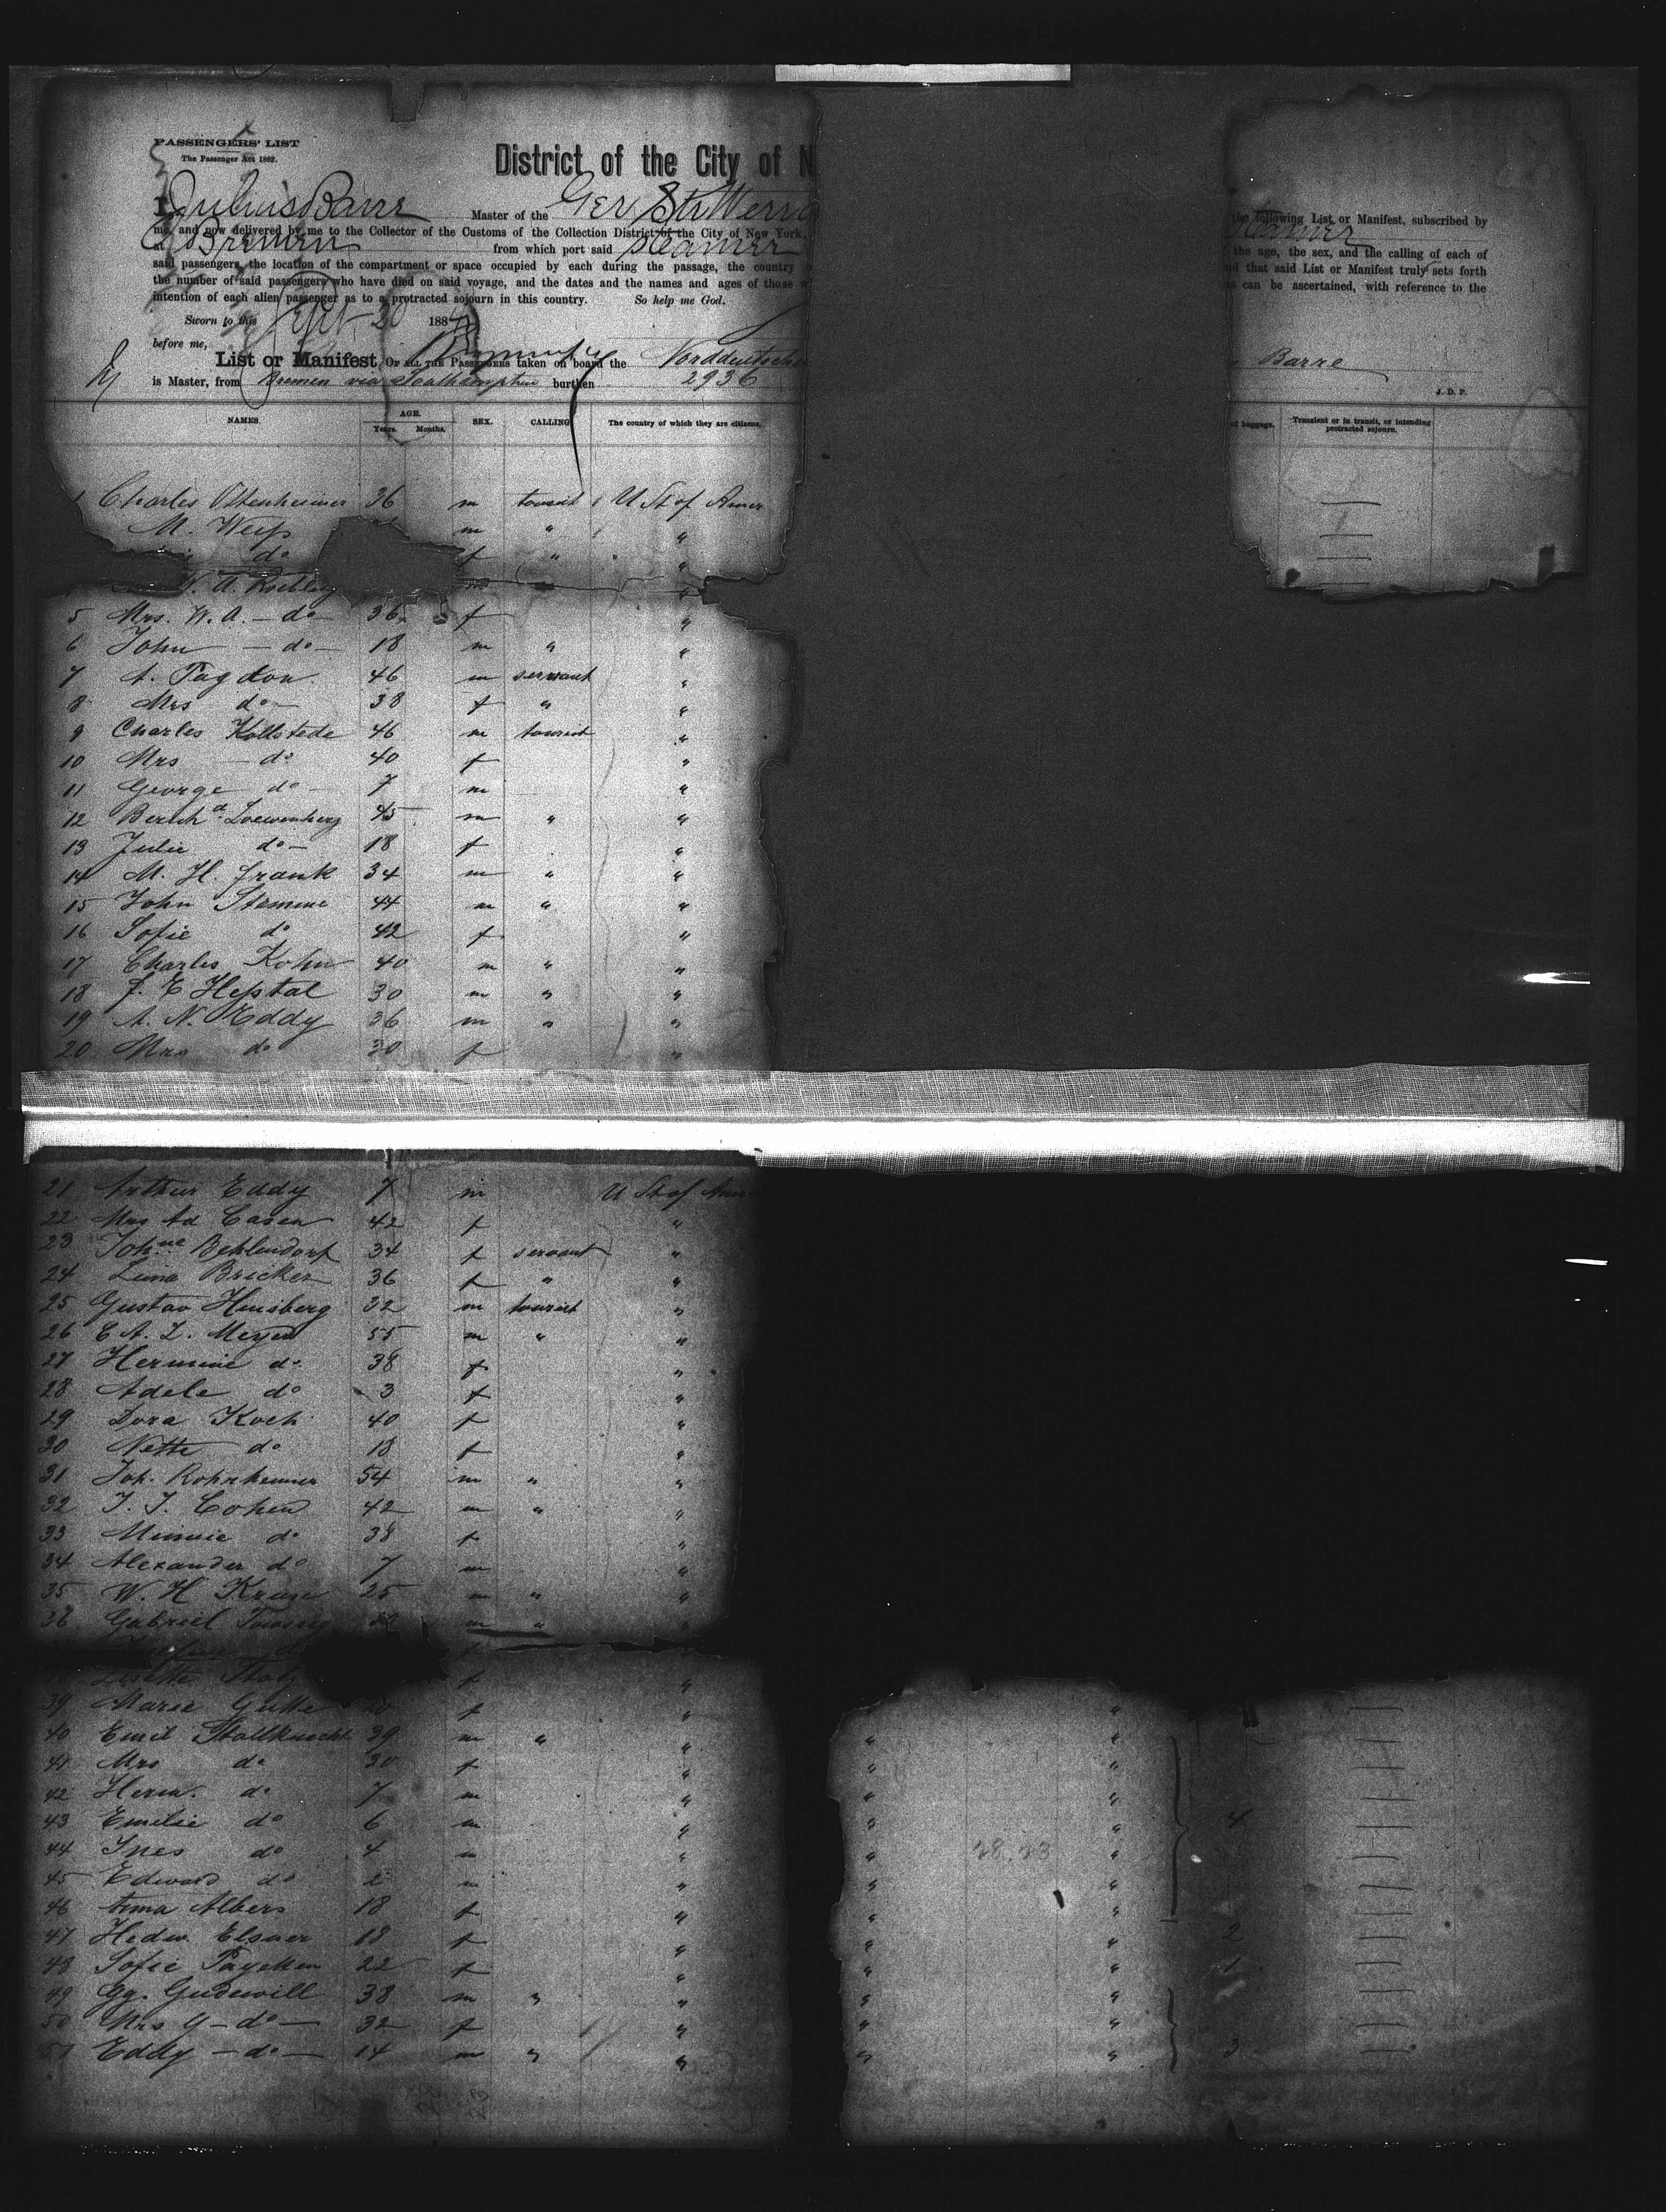 PASSENGERS' LIST
The Passenger Act 1882.
District of the City of N
I, Julius Barre Master of the Ger Str Werra
me, and now delivered by me to the Collector of the Customs of the Collection District of the City of New York,
at Bremen from which port said steamer
said passengers, the location of the compartment or space occupied by each during the passage, the country
the number of said passengers who have died on said voyage, and the dates and the names and ages of those w
intention of each alien passenger as to a protracted sojourn in this country. So help me God.
Sworn to this Sept 20 188
before me,
List or Manifest, OF ALL THE PASSENGERS taken on board the Norddeutsche
is Master, from Bremen via Southampton burthen 2936
the following List or Manifest, subscribed by
steamer
the age, the sex, and the calling of each of
nd that said List or Manifest truly sets forth
as can be ascertained, with reference to the
Barre
J. D. P.
NAMES. AGE. Years. Months. SEX. CALLING The country of which they are citizens.
of baggage. Transient or in transit, or intending protracted sojourn.
1 Charles Ottenheimer 36 m tourist U St of Amer
M. Weiss m " "
do f " "
W. A. Roebling m "
5 Mrs. W. A. — do — 36 f "
6 John — do — 18 m " "
7 A. Pagdon 46 m servant "
8 Mrs do — 38 f " "
9 Charles Kollstede 46 m tourist "
10 Mrs — do 40 f "
11 George do — 7 m "
12 Berth Loewenberg 45 m " "
13 Julie do — 18 f "
14 M. H. Frank 34 m " "
15 John Stemme 44 m " "
16 Sofie do 42 f "
17 Charles Kohn 40 m " "
18 J. E Hesstal 30 m " "
19 A. N. Eddy 36 m " "
20 Mrs do 30 f "
21 Arthur Eddy 7 m U St of Am
22 Mrs Ad Casen 42 f "
23 Johne Behlendorf 34 f servant "
24 Lina Bricker 36 f " "
25 Gustav Hinsberg 32 m tourist "
26 E A. L. Meyer 55 m " "
27 Hermine do 38 f "
28 Adele do 3 f "
29 Dora Koch 40 f "
30 Nette do 18 f "
31 Joh. Rohrheimer 54 m " "
32 J. J. Cohen 42 m " "
33 Minnie do 38 f "
34 Alexander do 7 m "
35 W. H Kruse 25 m " "
36 Gabriel m " "
f
Lisette f "
39 Marie f " "
40 Emil Stallknecht 39 m " " " "
41 Mrs do 30 f " " "
42 Herm. do 7 m " " "
43 Emilie do 6 m " " " 4
44 Ines do 4 m " " "
45 Edward do 2 m " " "
46 Anna Albers 18 f " " "
47 Hedw. Elsner 18 f " " " 2
48 Sofie Payeken 22 f " " " 1
49 Gg. Gudewill 38 m " " " "
50 Mrs G — do — 32 f " " "
51 Eddy — do — 14 m " " " " 3